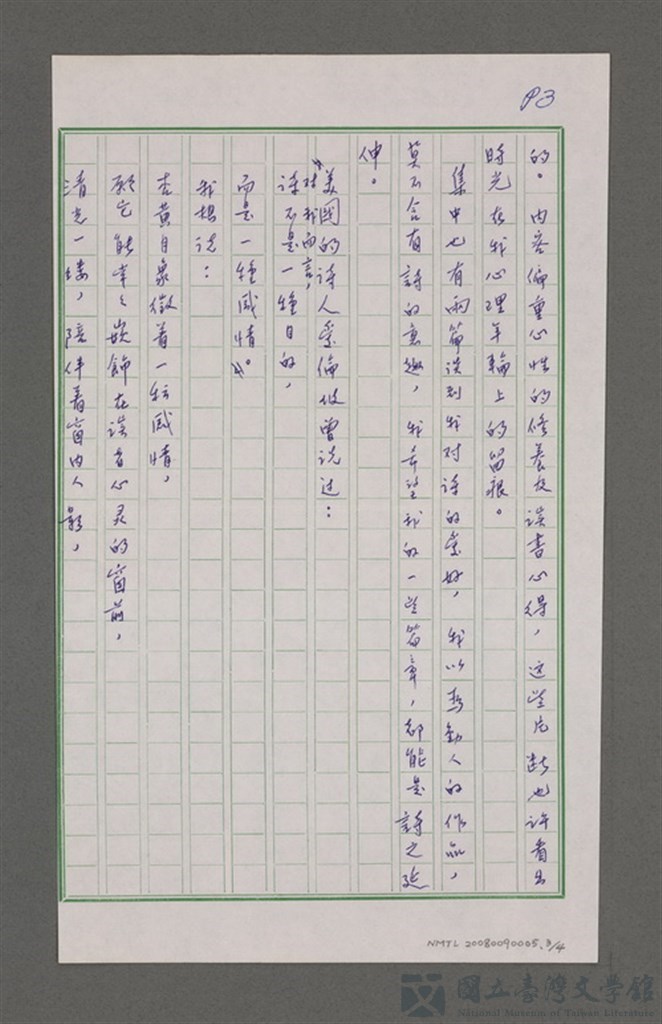 P3
的。内容偏重心性的修養及讀書心得,这些片断也许看出
時光在我心理年輪上的留痕。
集中也有兩篇谈到我对诗的愛好,我以為動人的作品,
莫不含有詩的意趣,我希望我的一些篇章,都能是詩之延
伸。
美國的诗人爱倫坡曾说过:
"对我而言,
诗不是一種目的,
而是一種感情"。
我想说:
杏黄月象徵着一轻感情,
願它能幸々嵌飾在读者心灵的窗前,
清光一缕,陪伴着窗内人影,
NMTL 20080090005.3/4
國立臺灣文學館
National Museum of Taiwan Literature